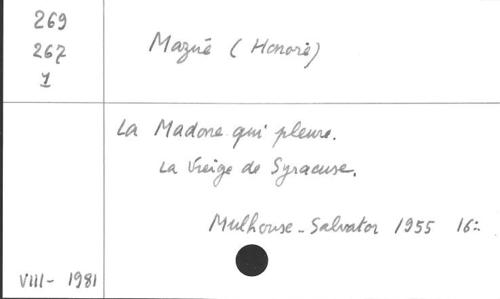 269
267
1
Mazué (Honoré)
La Madone qui pleure.
La Vierge de Syracuse.
Mulhouse - Salvator 1955 16º
VIII - 1981